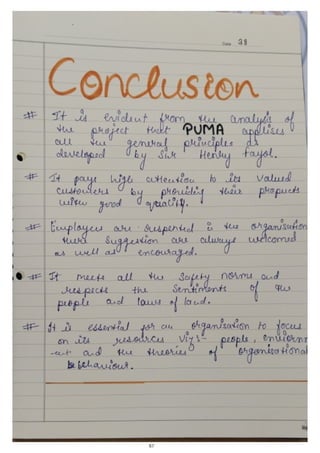 Date 38
Conclusion
# It is evident from the analysis of
the project that PUMA applies
all the general principles as
developed by Sir Henry fayol.
# It pays high attention to its valued
customers by providing their products
with good quality.
# Employees are respented in the organisation
there suggestion are always welcomed
as well as encouraged.
# It meets all the safety norms and
respects the sentiments of the
people and laws of land.
# It is essential for an organisation to focus
on its resources viz:- people, environm
-ent and the theories of organisational
behaviour.